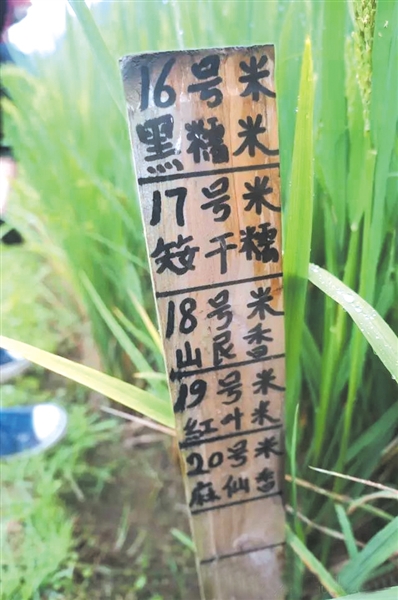 16号米
黑糯米
17号米
矮干糯
18号米
山艮香
19号米
红叶米
20号米
麻仙香